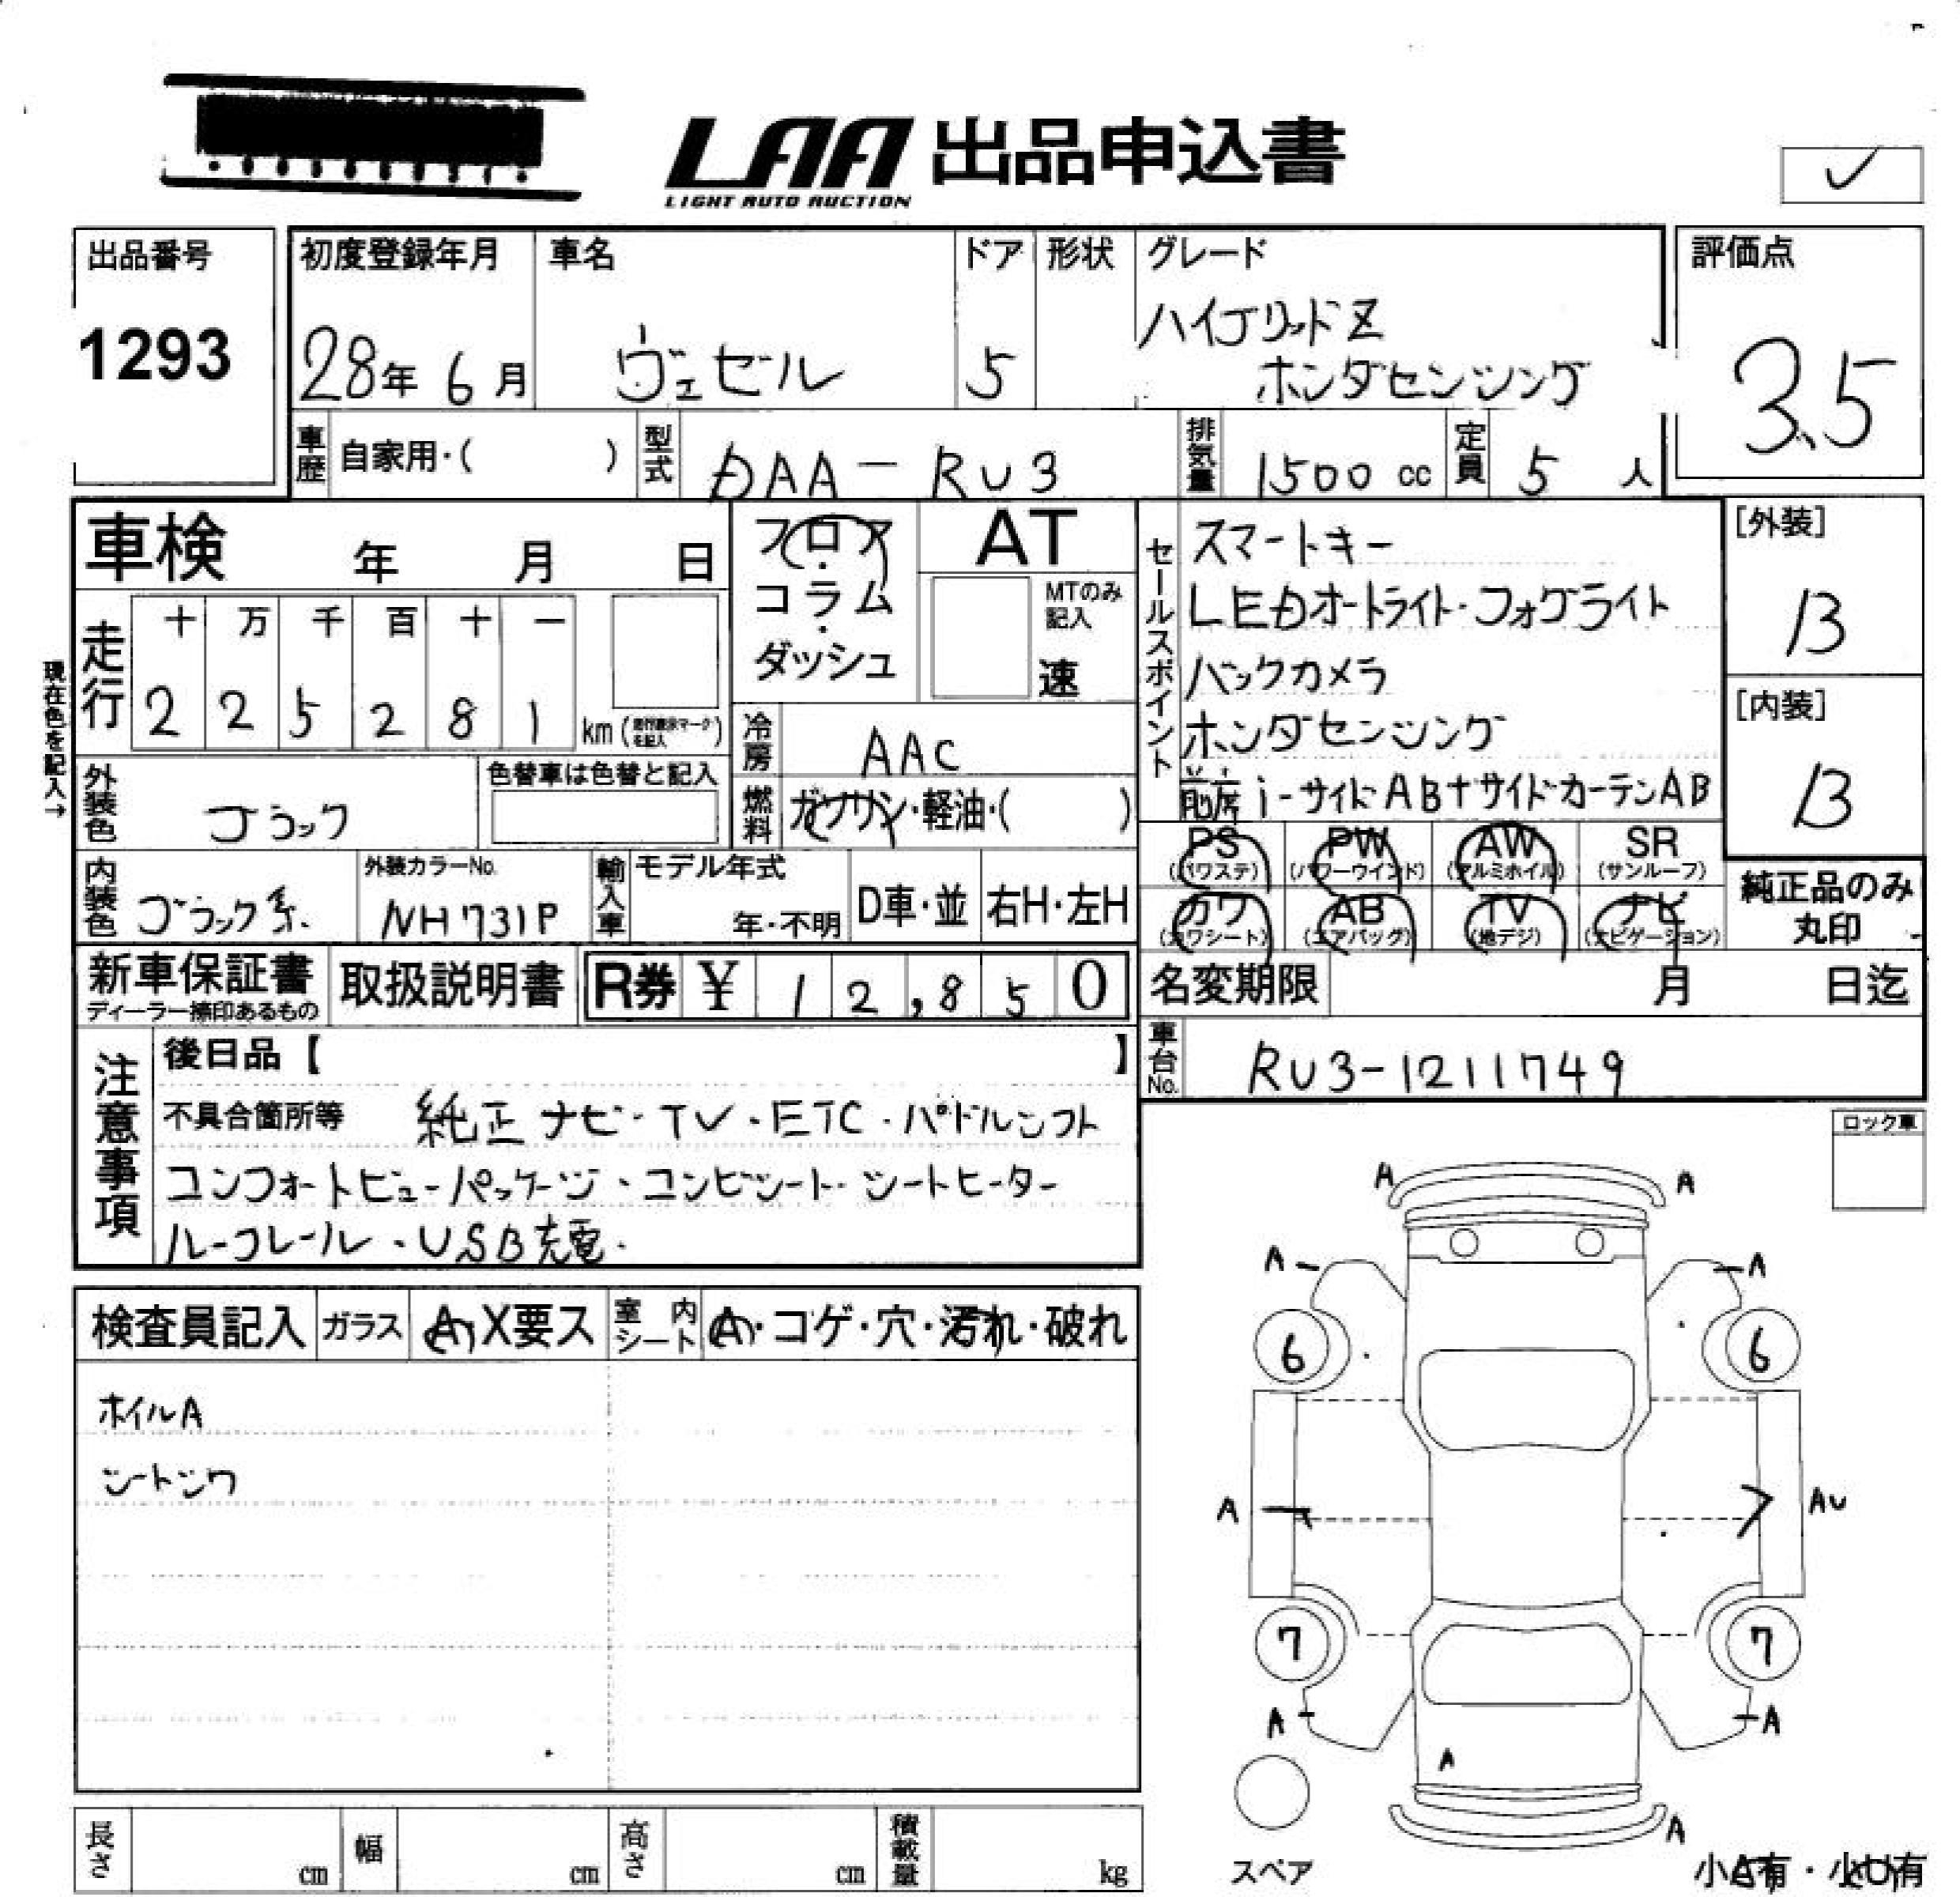 LAA 出品申込書
LIGHT AUTO AUCTION
✓
出品番号
1293
初度登録年月
28年 6月
車名
ヴェゼル
ドア
5
形状
グレード
ハイブリッドZ
ホンダセンシング
評価点
3.5
車歴 自家用・( )
型式 DAA-RU3
排気量 1500 cc
定員 5 人
車検 年 月 日
フロア・コラム・ダッシュ
AT
MTのみ記入
速
セールスポイント
スマートキー
LEDオートライト・フォグライト
バックカメラ
ホンダセンシング
前席i-サイドAB+サイドカーテンAB
[外装]
B
[内装]
B
現在色を記入→
走行
十 万 千 百 十 一
2 2 5 2 8 1 km
外装色 ブラック
色替車は色替と記入
冷房 AAC
燃料 ガソリン・軽油・( )
内装色 ブラック系
外装カラーNo.
NH731P
輸入車
モデル年式
年・不明
D車・並
右H・左H
PS (パワステ)
PW (パワーウインド)
AW (アルミホイル)
SR (サンルーフ)
カワ (カワシート)
AB (エアバッグ)
TV (地デジ)
ナビ (ナビゲーション)
純正品のみ
丸印
新車保証書
ディーラー捺印あるもの
取扱説明書
R券 ¥ 12,850
名変期限 月 日迄
車台No. RU3-1211749
注意事項
後日品【 】
不具合箇所等 純正ナビ・TV・ETC・パドルシフト
コンフォートビューパッケージ・コンビシート・シートヒーター
ルーフレール・USB充電
ロック車
検査員記入
ガラス
A・X要ス
室内シート
A・コゲ・穴・汚れ・破れ
ホイルA
シートシワ
A A
A A
6 6
A AU
7 7
A A
A
A
スペア
小A有・小U有
長さ cm
幅 cm
高さ cm
積載量 kg